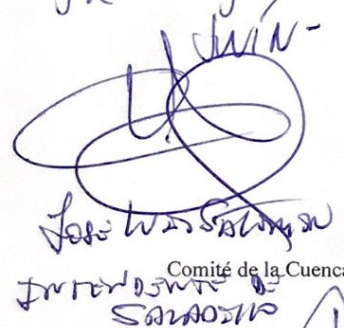 JUNIN-
JOSE LUIS SALOMON
Comité de la Cuenca
INTENDENTE DE
SALADILLO